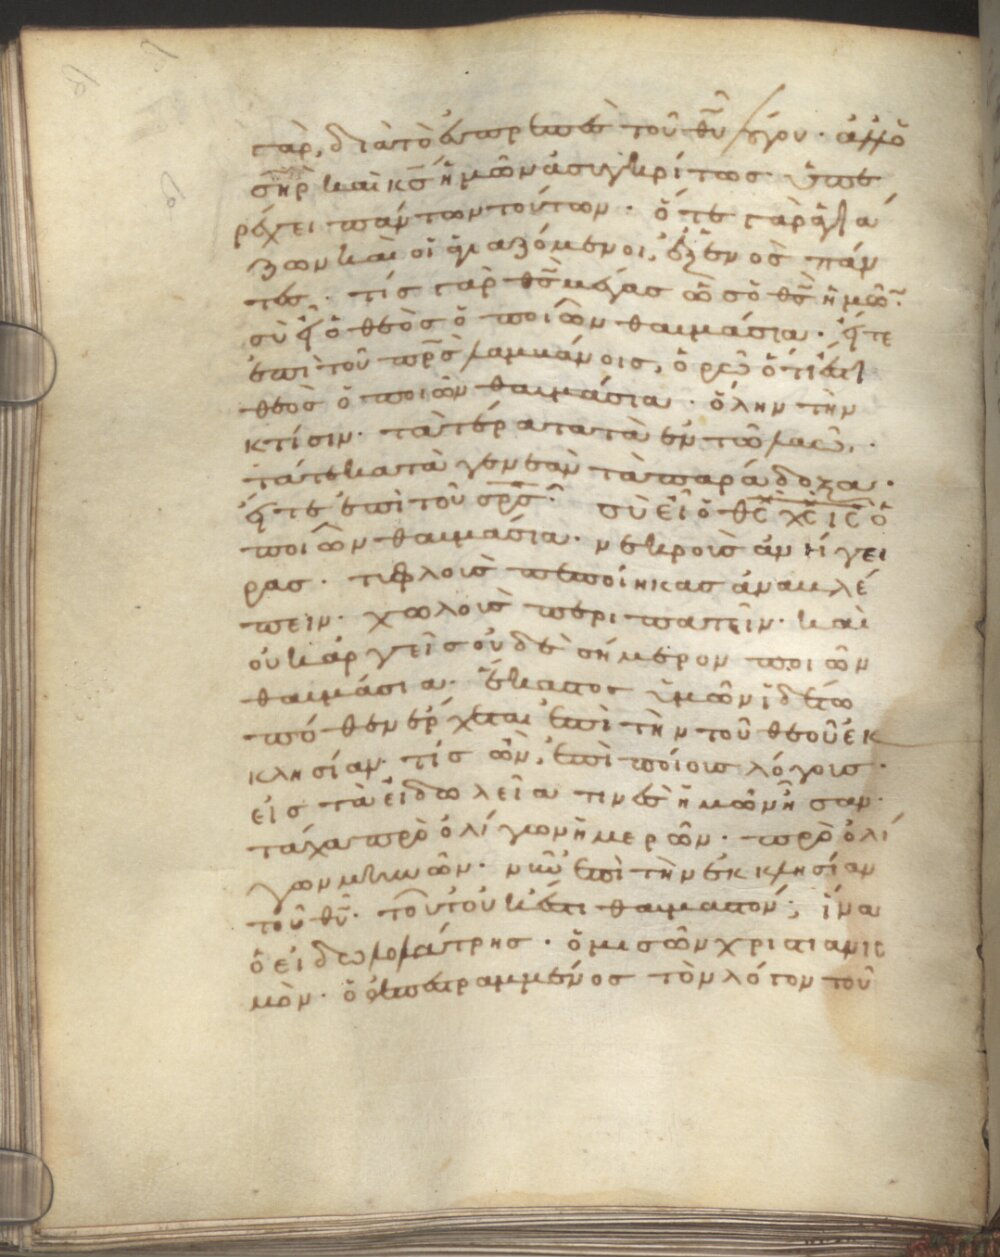 γὰρ, διὰ τὸ εὐπρεπὲς τοῦ θυ λόγου· ἀλλ' ὁ
σηρ καὶ κς ἡμῶν ἀσυγκρίτως ὑπε
ρέχει πάντων τούτων. ὅ τε γὰρ ἁγιά
ζων καὶ οἱ ἁγιαζόμενοι, ἐξ ἑνὸς πάν
τες. τίς γὰρ θς μέγας ὡς ὁ θς ἡμῶν·
σὺ εἶ ὁ θεὸς ὁ ποιῶν θαυμάσια. εἴτε
ἐπὶ τοῦ πρς λαμβάνοις, ὁρῶ ὅτι ἐστὶ
θεὸς ὁ ποιῶν θαυμάσια. ὅλην τὴν
κτίσιν. τὰ τέρατα τὰ ἐν τῶ λαῶ.
τά τε κατὰ γενεὰν τὰ παράδοξα.
εἴτε ἐπὶ τοῦ σρς. σὺ εἶ ὁ θς χς ις ὁ
ποιῶν θαυμάσια. νεκροὺς ἀνήγει
ρας. τυφλοὺς πεποίηκας ἀναβλέ
πειν. χωλοὺς περιπατεῖν. καὶ
οὐκ ἀργεῖς οὐδὲ σήμερον ποιῶν
θαυμάσια. ἕκαστος ὑμῶν ἰδέτω
πόθεν ἔρχεται ἐπὶ τὴν τοῦ θεοῦ ἐκ
κλησίαν. τίς ὢν, ἐπὶ ποίοις λόγοις.
εἰς τὰ εἰδωλεῖα τινὲς ἡμῶν ἦσαν.
τάχα πρὸ ὀλίγων ἡμερῶν. πρὸ ὀλί
γων μηνῶν. νῦν ἐπὶ τὴν ἐκκλησίαν
τοῦ θυ. τοῦτο οὐκ ἔστι θαυμαστόν; ἵνα
ὁ εἰδωλολάτρης. ὁ μισῶν χριστιανις
μὸν. ὁ ἀπεστραμμένος τὸν λόγον τοῦ